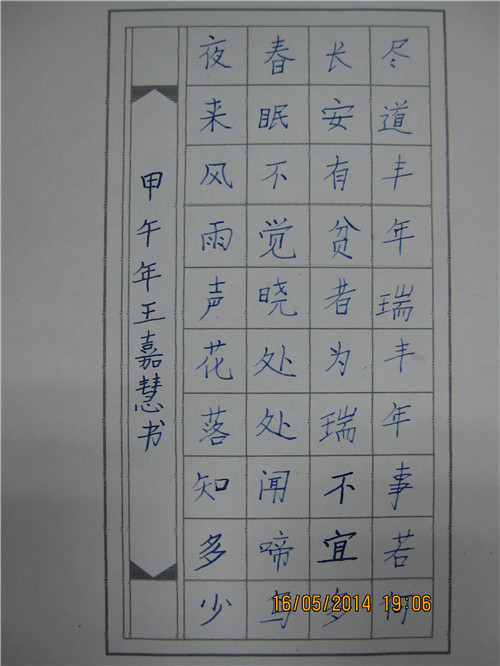 尽道丰年瑞丰年事若何
长安有贫者为瑞不宜多
春眠不觉晓处处闻啼鸟
夜来风雨声花落知多少
甲午年王嘉慧书
16/05/2014 19:06